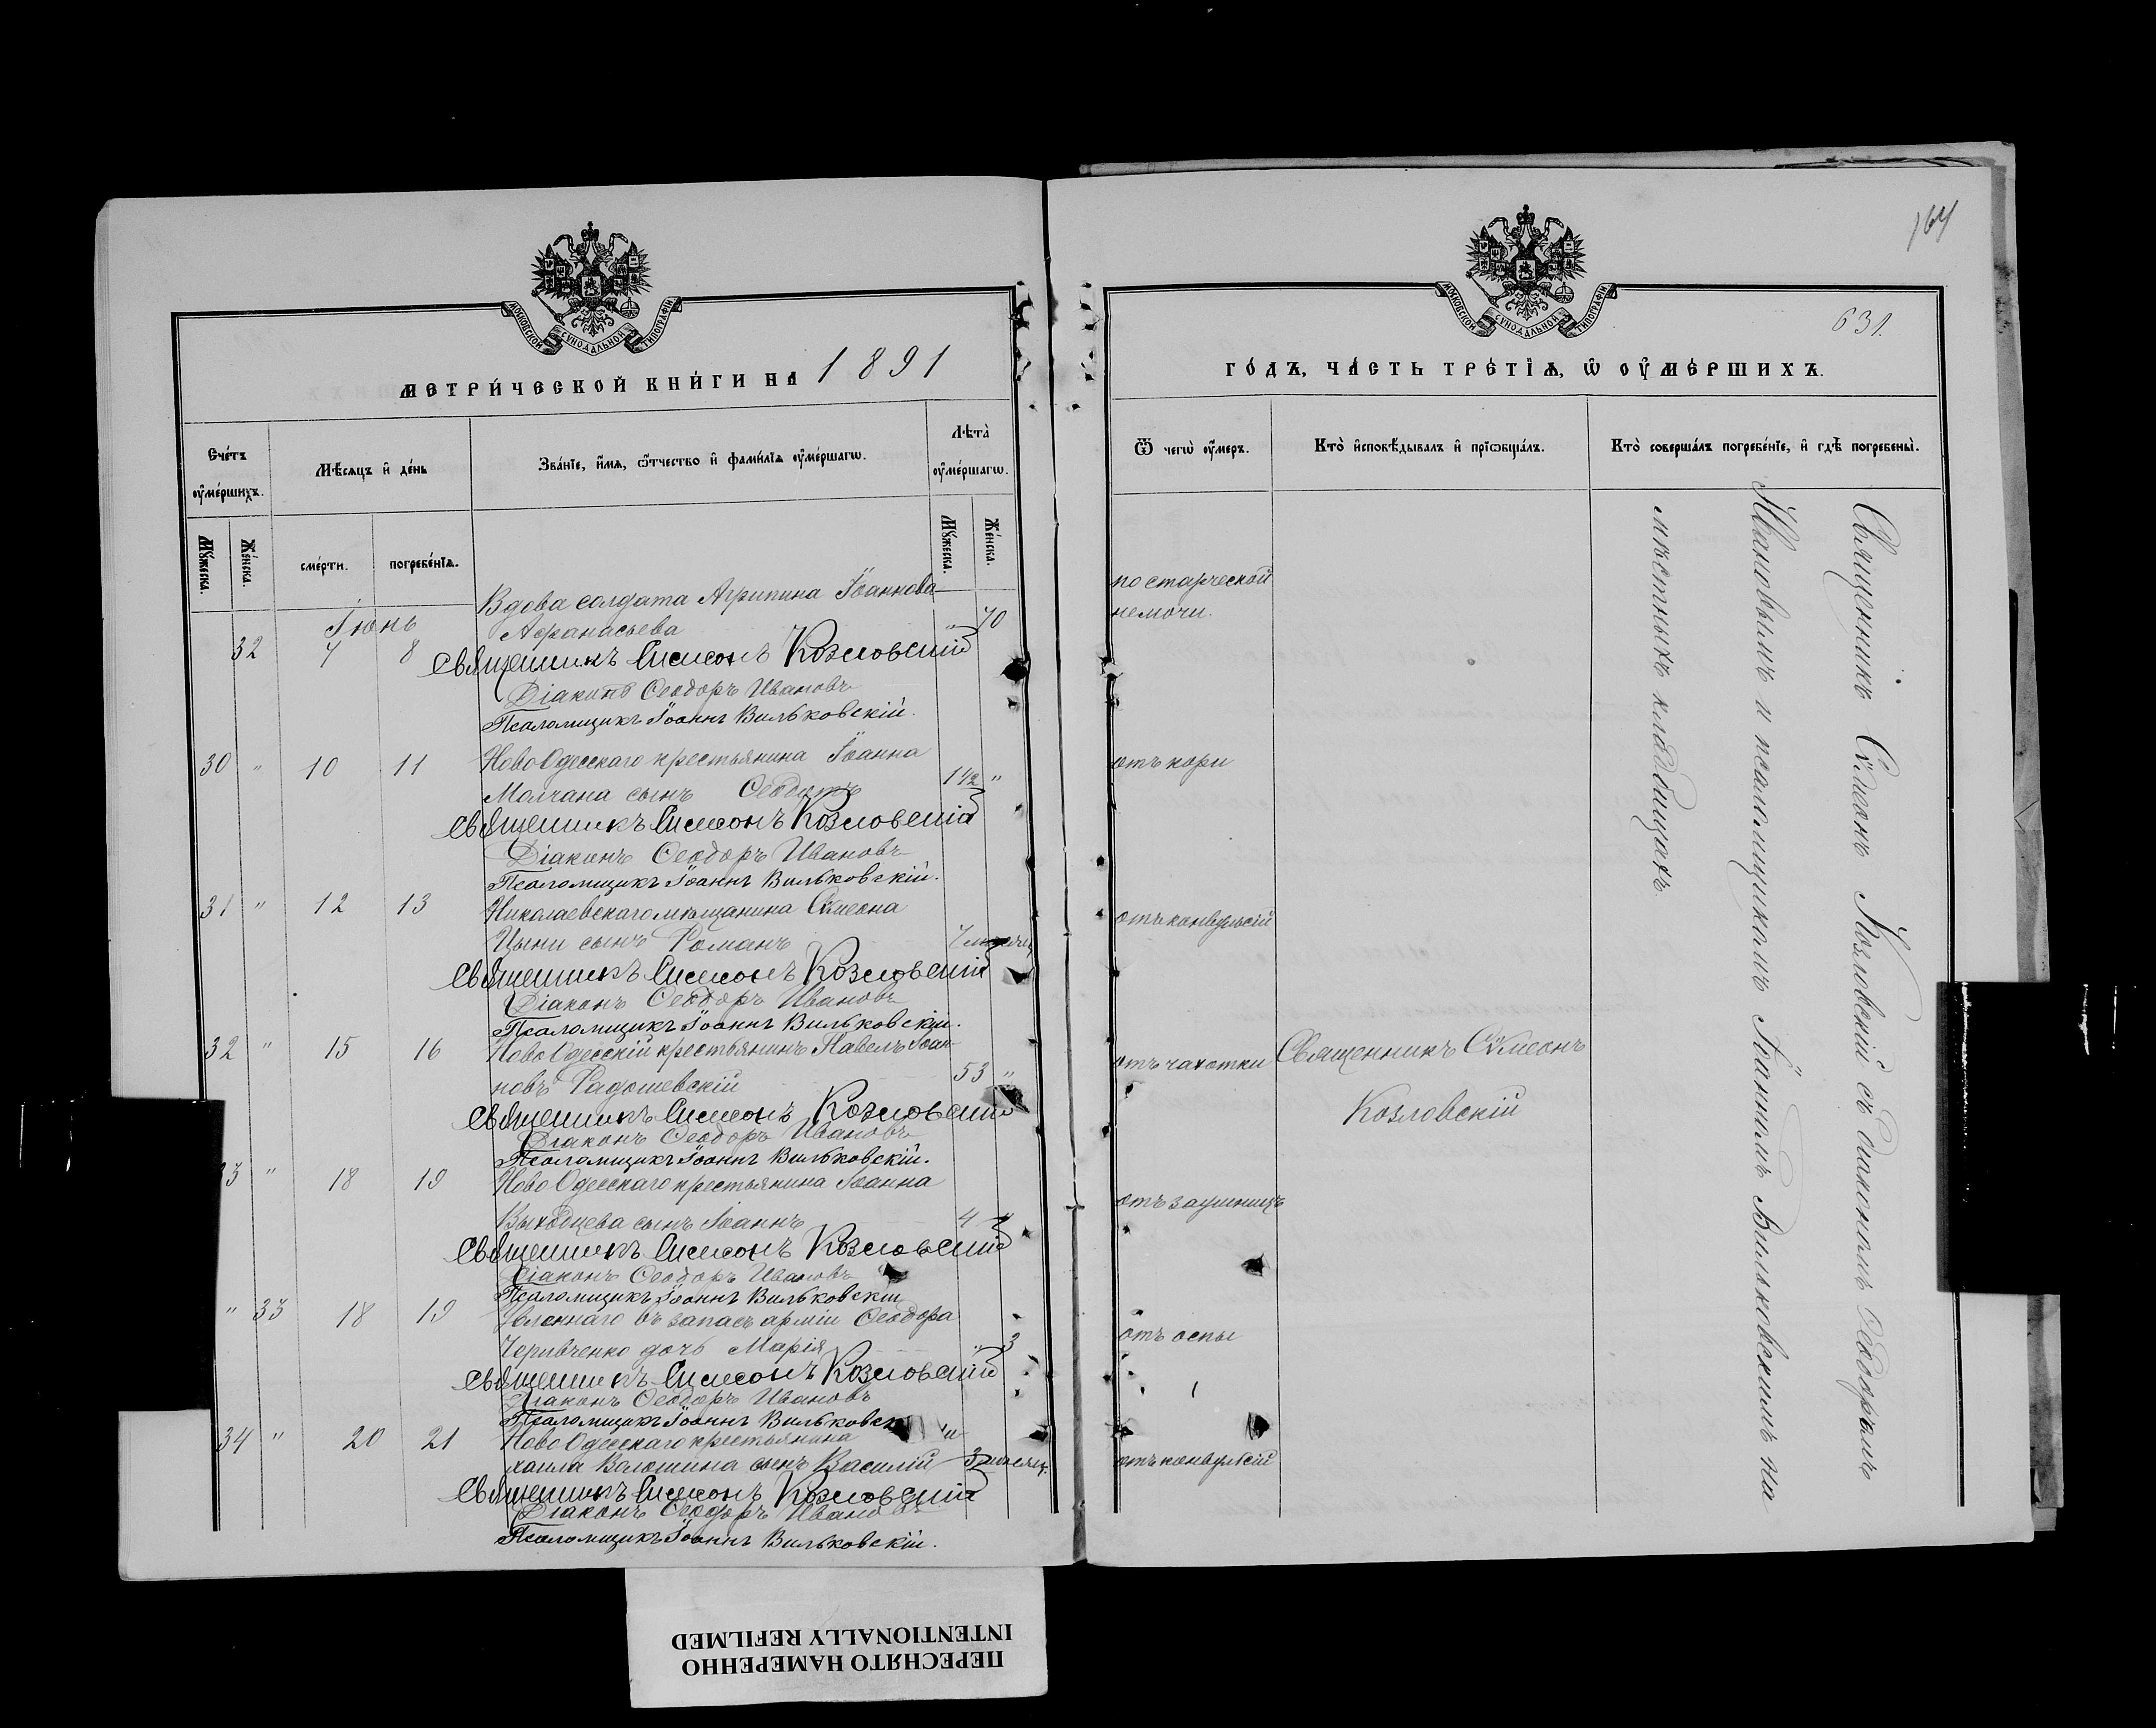 МОСКОВСКОЙ СѴНОДАЛЬНОЙ ТИПОГРАФІИ
МЕТРИ́ЧЕСКОЙ КНИ́ГИ НА 1891
Сче́тъ оу҆ме́ршихъ.
Мѣ́сяцъ и҆ де́нь
Зва́нїе, и҆́мѧ, ѻ҆́тчество и҆ фами́лїѧ оу҆ме́ршагѡ.
Лѣ́та оу҆ме́ршагѡ.
Мꙋ́жеска.
Же́нска.
сме́рти.
погребе́нїѧ.
Мꙋ́жеска.
Же́нска.
Іюнь
Вдова солдата Агрипина Іоаннова
32 7 8 Афанасьева " 70
Священникъ Симеонъ Козловскій
Діаконъ Ѳеодоръ Ивановъ
Псаломщикъ Іоаннъ Вильковскій.
30 " 10 11 Ново Одесскаго крестьянина Іоанна
Молчана сынъ Ѳеодотъ 1 1/2 "
Священникъ Симеонъ Козловскій
Діаконъ Ѳеодоръ Ивановъ
Псаломщикъ Іоаннъ Вильковскій.
31 " 12 13 Николаевскаго мѣщанина Сѵмеона
Цыни сынъ Романъ 7 месяц
Священникъ Симеонъ Козловскій
Діаконъ Ѳеодоръ Ивановъ
Псаломщикъ Іоаннъ Вильковскій.
32 " 15 16 Ново Одесскій крестьянинъ Павелъ Іоан-
новъ Радошевскій 53 "
Священникъ Симеонъ Козловскій
Діаконъ Ѳеодоръ Ивановъ
Псаломщикъ Іоаннъ Вильковскій.
33 " 18 19 Ново Одесскаго крестьянина Іоанна
Выходцева сынъ Іоаннъ 4 "
Священникъ Симеонъ Козловскій
Діаконъ Ѳеодоръ Ивановъ
Псаломщикъ Іоаннъ Вильковскій
" 33 18 19 въ запасъ арміи Ѳеодора
дочь Марія " 3
Священникъ Симеонъ Козловскій
Діаконъ Ѳеодоръ Ивановъ
Псаломщикъ Іоаннъ Вильковск
34 " 20 21 Ново Одесскаго крестьянина
хаила Волошина сынъ Василій 3 месяц.
Священникъ Симеонъ Козловскій
Діаконъ Ѳеодоръ Ивановъ
Псаломщикъ Іоаннъ Вильковскій.
164
631.
МОСКОВСКОЙ СѴНОДАЛЬНОЙ ТИПОГРАФІИ
ГО́ДЪ, ЧА́СТЬ ТРЕ́ТЇѦ, Ѡ҆ ОУ҆МЕ́РШИХЪ.
Ѿ чегѡ̀ оу҆́меръ.
Кто̀ и҆сповѣ́дывалъ и҆ прїѡбща́лъ.
Кто̀ соверша́лъ погребе́нїе, и҆ гдѣ̀ погребены̀.
по старческой
немочи.
отъ кори
отъ конвульсій
отъ чахотки
Священникъ Сѵмеонъ
Козловскій
отъ заушницъ
отъ оспы
отъ конвульсій
Священникъ Сѵмеонъ Козловскій съ діакономъ Ѳеодоромъ
Ивановымъ и псаломщикомъ Іоанномъ Вильковскимъ на
мѣстныхъ кладбищахъ.
ПЕРЕСНЯТО НАМЕРЕННО
INTENTIONALLY REFILMED